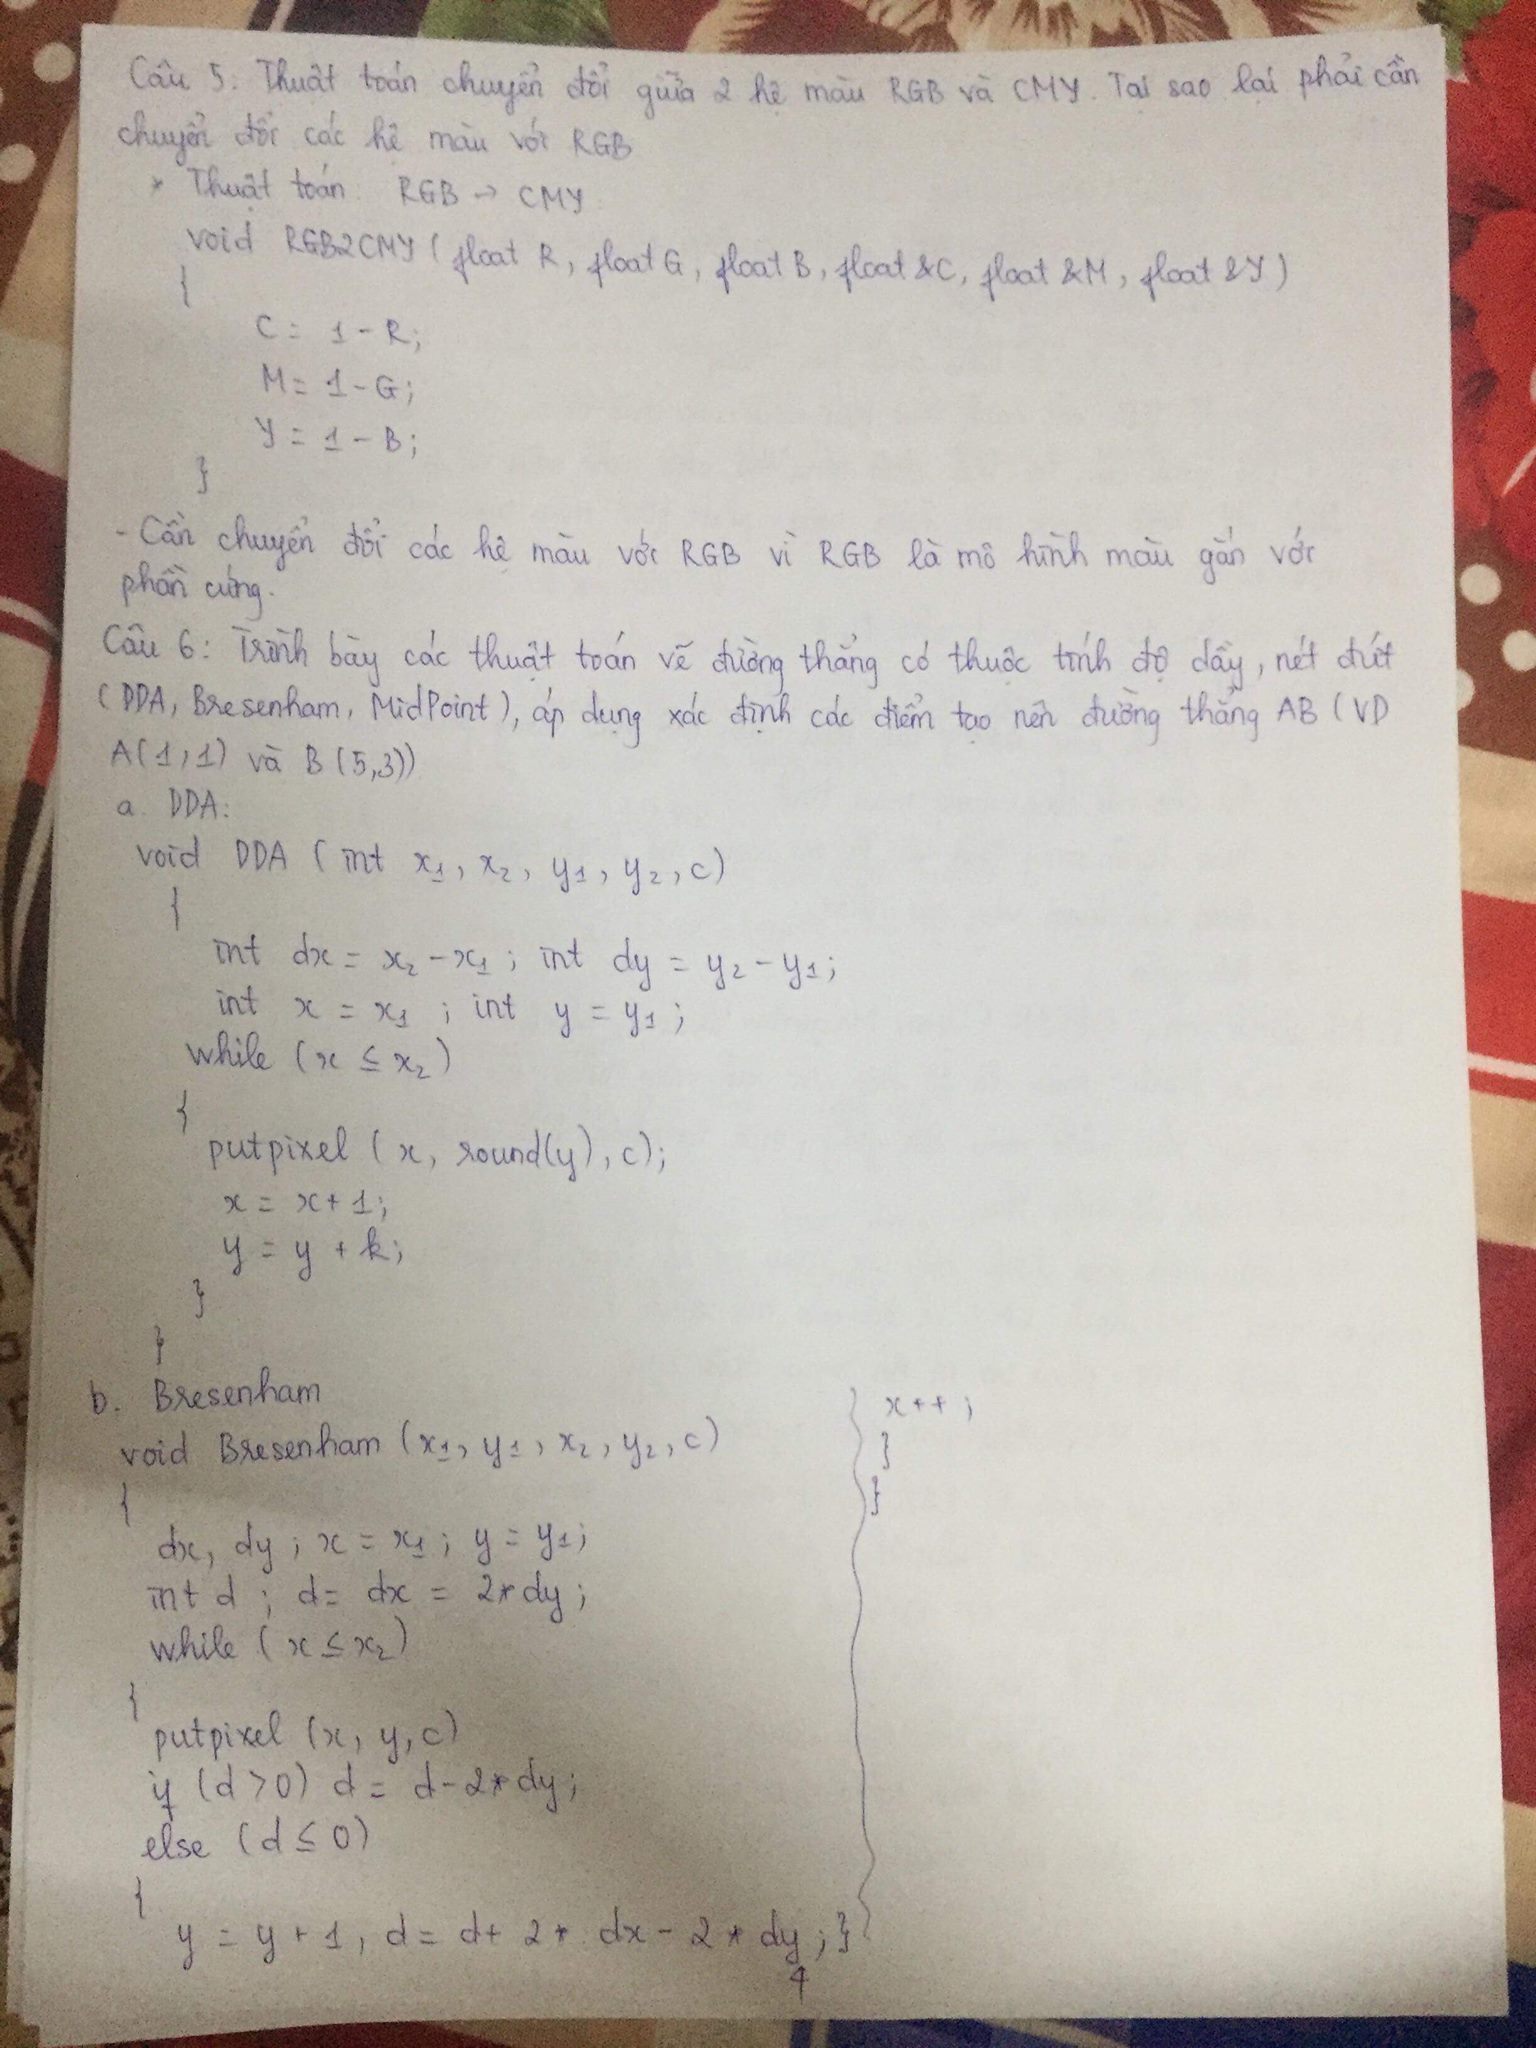 Câu 5: Thuật toán chuyển đổi giữa 2 hệ màu RGB và CMY. Tại sao lại phải cần
chuyển đổi các hệ màu với RGB
* Thuật toán RGB → CMY
void RGB2CMY (float R, float G, float B, float &C, float &M, float &Y)
{
C = 1 - R;
M = 1 - G;
Y = 1 - B;
}
- Cần chuyển đổi các hệ màu với RGB vì RGB là mô hình màu gắn với
phần cứng.
Câu 6: Trình bày các thuật toán vẽ đường thẳng có thuộc tính độ dầy, nét đứt
(DDA, Bresenham, MidPoint), áp dụng xác định các điểm tạo nên đường thẳng AB (VD
A(1,1) và B(5,3))
a. DDA:
void DDA (int x1, x2, y1, y2, c)
{
int dx = x2 - x1; int dy = y2 - y1;
int x = x1; int y = y1;
while (x ≤ x2)
{
putpixel (x, round(y), c);
x = x + 1;
y = y + k;
}
}
b. Bresenham
void Bresenham (x1, y1, x2, y2, c)
{
dx, dy; x = x1; y = y1;
int d; d = dx = 2*dy;
while (x ≤ x2)
{
putpixel (x, y, c)
if (d > 0) d = d - 2*dy;
else (d ≤ 0)
{
y = y + 1, d = d + 2* dx - 2* dy; }
x++;
}
}
4